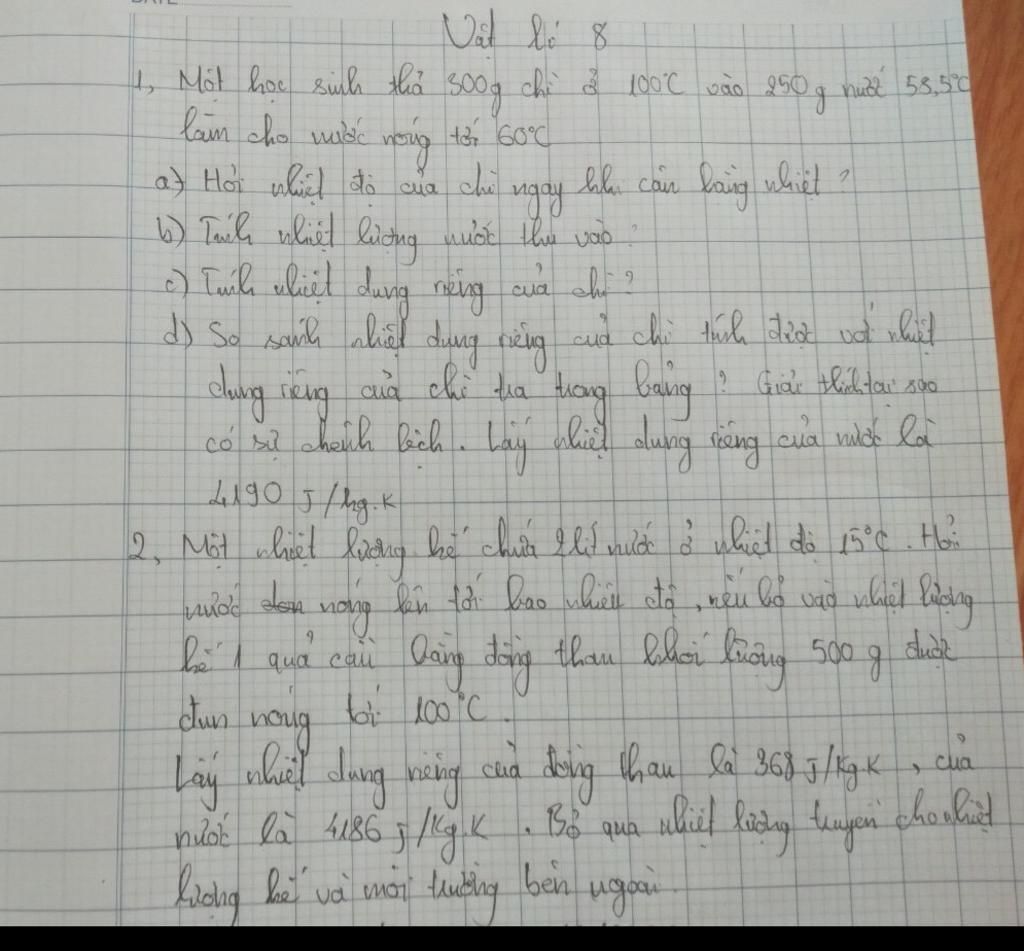 Vật lí 8
1, Một học sinh thả 300g chì ở 100°C vào 250g nước 58,5°C
làm cho nước nóng tới 60°C
a) Hỏi nhiệt độ của chì ngay khi cân bằng nhiệt?
b) Tính nhiệt lượng nước thu vào?
c) Tính nhiệt dung riêng của chì?
d) So sánh nhiệt dung riêng của chì tính được với nhiệt
dung riêng của chì tra trong bảng? Giải thích tại sao
có sự chênh lệch. Lấy nhiệt dung riêng của nước là
4190 J/kg.K
2, Một nhiệt lượng kế chứa 2 lít nước ở nhiệt độ 15°C. Hỏi
nước nóng lên tới bao nhiêu độ, nếu bỏ vào nhiệt lượng
kế 1 quả cầu bằng đồng thau khối lượng 500 g được
đun nóng tới 100°C.
Lấy nhiệt dung riêng của đồng thau là 368 J/kg.K, của
nước là 4186 J/kg.K. Bỏ qua nhiệt lượng truyền cho nhiệt
lượng kế và môi trường bên ngoài.